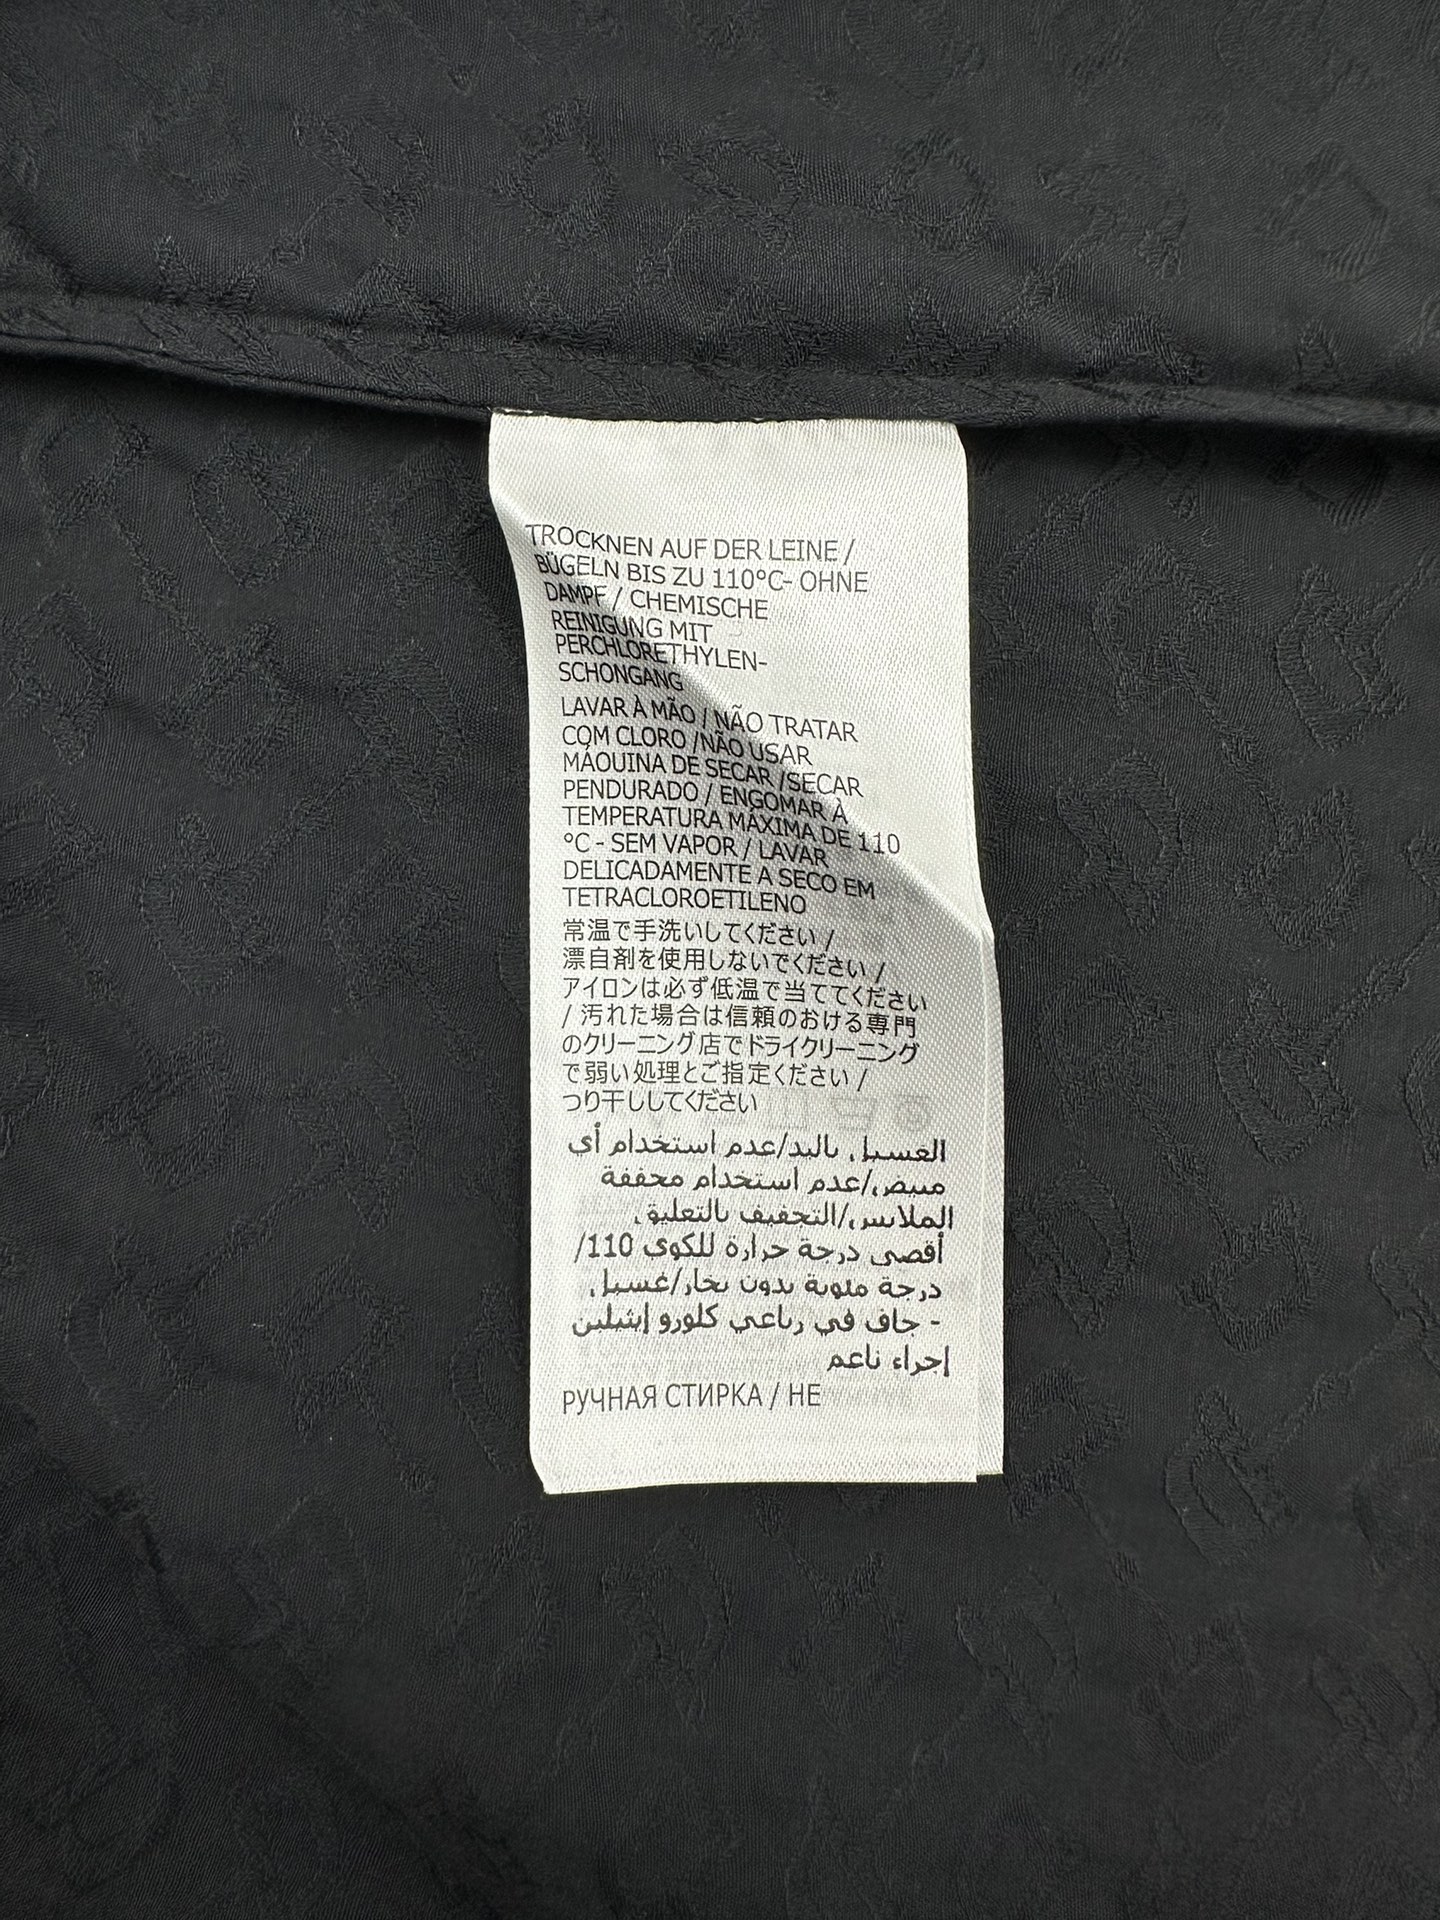 TROCKNEN AUF DER LEINE /
BÜGELN BIS ZU 110°C- OHNE
DAMPF / CHEMISCHE
REINIGUNG MIT
PERCHLORETHYLEN-
SCHONGANG
LAVAR À MÃO / NÃO TRATAR
COM CLORO /NÃO USAR
MÁQUINA DE SECAR /SECAR
PENDURADO / ENGOMAR À
TEMPERATURA MÁXIMA DE 110
°C - SEM VAPOR / LAVAR
DELICADAMENTE A SECO EM
TETRACLOROETILENO
常温で手洗いしてください /
漂自剤を使用しないでください /
アイロンは必ず低温で当ててください
/ 汚れた場合は信頼のおける専門
のクリーニング店でドライクリーニング
で弱い処理とご指定ください /
つり干ししてください
الغسيل باليد/عدم استخدام أي
مبيض/عدم استخدام مجففة
الملابس/التجفيف بالتعليق
أقصى درجة حرارة للكوي 110/
درجة مئوية بدون بخار/غسيل
- جاف في رباعي كلورو إيثيلين
إجراء ناعم
РУЧНАЯ СТИРКА / НЕ